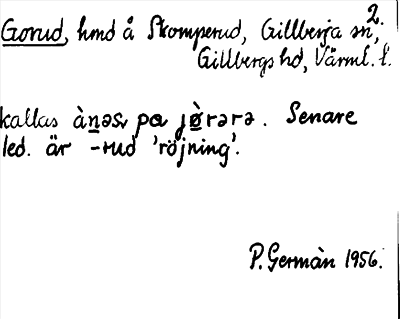 2.
Gorud, hmd å Skomperud, Gillberga sn,
Gillbergs hd, Värml. l.
kallas ànəsv pɑ jø̀rərə. Senare
led. är -rud 'röjning'.
P. Germàn 1956.